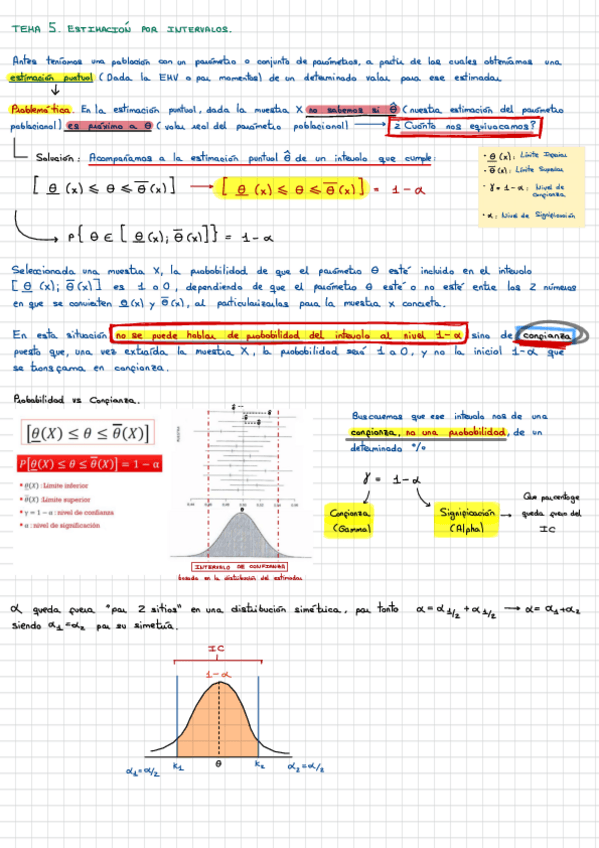 TEMA 5. ESTIMACIÓN POR INTERVALOS.
Antes teníamos una población con un parámetro o conjunto de parámetros, a partir de los cuales obteníamos una
estimación puntual (Dada la EMV o por momentos) de un determinado valor para ese estimador.
Problemática. En la estimación puntual, dada la muestra X no sabemos si θ̂ (nuestra estimación del parámetro
poblacional) es próxima a θ (valor real del parámetro poblacional) → ¿Cuánto nos equivocamos?
Solución: Acompañamos a la estimación puntual θ̂ de un intervalo que cumple:
[θ̲(x) ≤ θ ≤ θ̅(x)] → [θ̲(x) ≤ θ ≤ θ̅(x)] = 1-α
· θ̲(x): Límite Inferior
· θ̅(x): Límite Superior
· γ = 1-α: Nivel de
confianza
· α: Nivel de Significación
P{θ ∈ [θ̲(x); θ̅(x)]} = 1-α
Seleccionada una muestra X, la probabilidad de que el parámetro θ esté incluido en el intervalo
[θ̲(x); θ̅(x)] es 1 o 0, dependiendo de que el parámetro θ esté o no esté entre los 2 números
en que se convierten θ̲(x) y θ̅(x), al particularizarlos para la muestra x concreta.
En esta situación no se puede hablar de probabilidad del intervalo al nivel 1-α sino de confianza
puesto que, una vez extraída la muestra X, la probabilidad será 1 o 0, y no la inicial 1-α que
se transforma en confianza.
Probabilidad vs Confianza.
[θ̲(X) ≤ θ ≤ θ̅(X)]
P[θ̲(X) ≤ θ ≤ θ̅(X)] = 1 − α
• θ̲(X) :Límite inferior
• θ̅(X) :Límite superior
• γ = 1 − α : nivel de confianza
• α : nivel de significación
INTERVALO DE CONFIANZA
basado en la distribución del estimador
Buscaremos que ese intervalo nos de una
confianza, no una probabilidad, de un
determinado %
γ = 1-α
Confianza
(Gamma)
Significación
(Alpha)
Que porcentaje
queda fuera del
IC
α queda fuera "por 2 sitios" en una distribución simétrica, por tanto α = α1/2 + α1/2 → α = α1+α2
siendo α1=α2 por su simetría.
IC
1-α
α1=α/2 K1 θ K2 α2=α/2